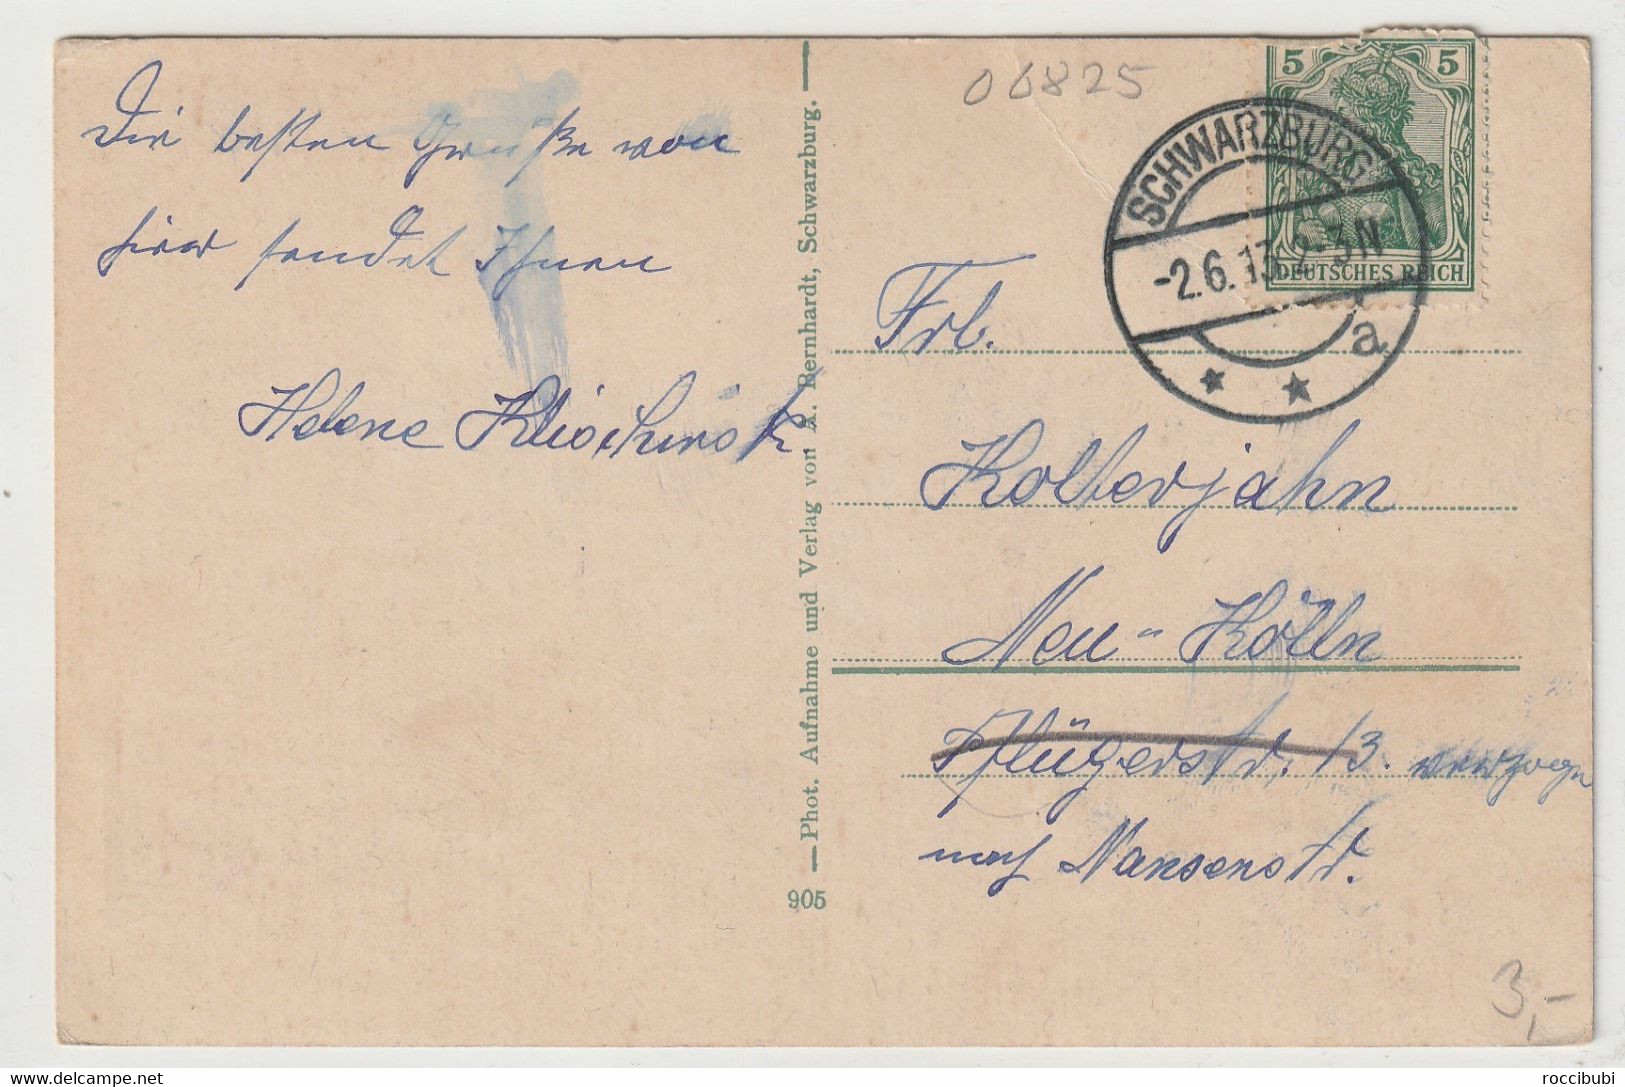 Die besten Grüße von
hier sendet Ihnen
Helene
06825
5 5
DEUTSCHES REICH
SCHWARZBURG
-2.6.13. 2-3 N
a
Frl.
Kolterjahn
Neu-Kölln
Pflügerstr. 13. verzogen
nach Nansenstr.
Phot. Aufnahme und Verlag von A. Bernhardt, Schwarzburg.
905
3,-
delcampe.net
roccibubi